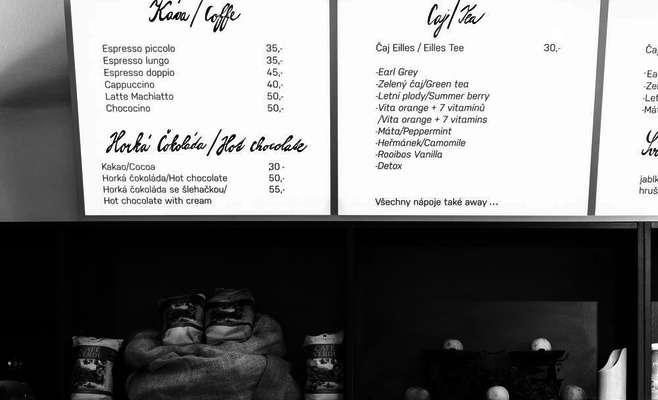 Káva/Coffe
Espresso piccolo 35,-
Espresso lungo 35,-
Espresso doppio 45,-
Cappuccino 40,-
Latte Machiatto 50,-
Chococino 50,-
Horká Čokoláda/Hot chocolate
Kakao/Cocoa 30-
Horká čokoláda/Hot chocolate 50,-
Horká čokoláda se šlehačkou/ 55,-
Hot chocolate with cream
Čaj/Tea
Čaj Eilles / Eilles Tee 30,-
-Earl Grey
-Zelený čaj/Green tea
-Letní plody/Summer berry
-Vita orange + 7 vitamínů
/Vita orange + 7 vitamins
-Máta/Peppermint
-Heřmánek/Camomile
-Rooibos Vanilla
-Detox
Všechny nápoje také away ...
CAFÉ
VERDE